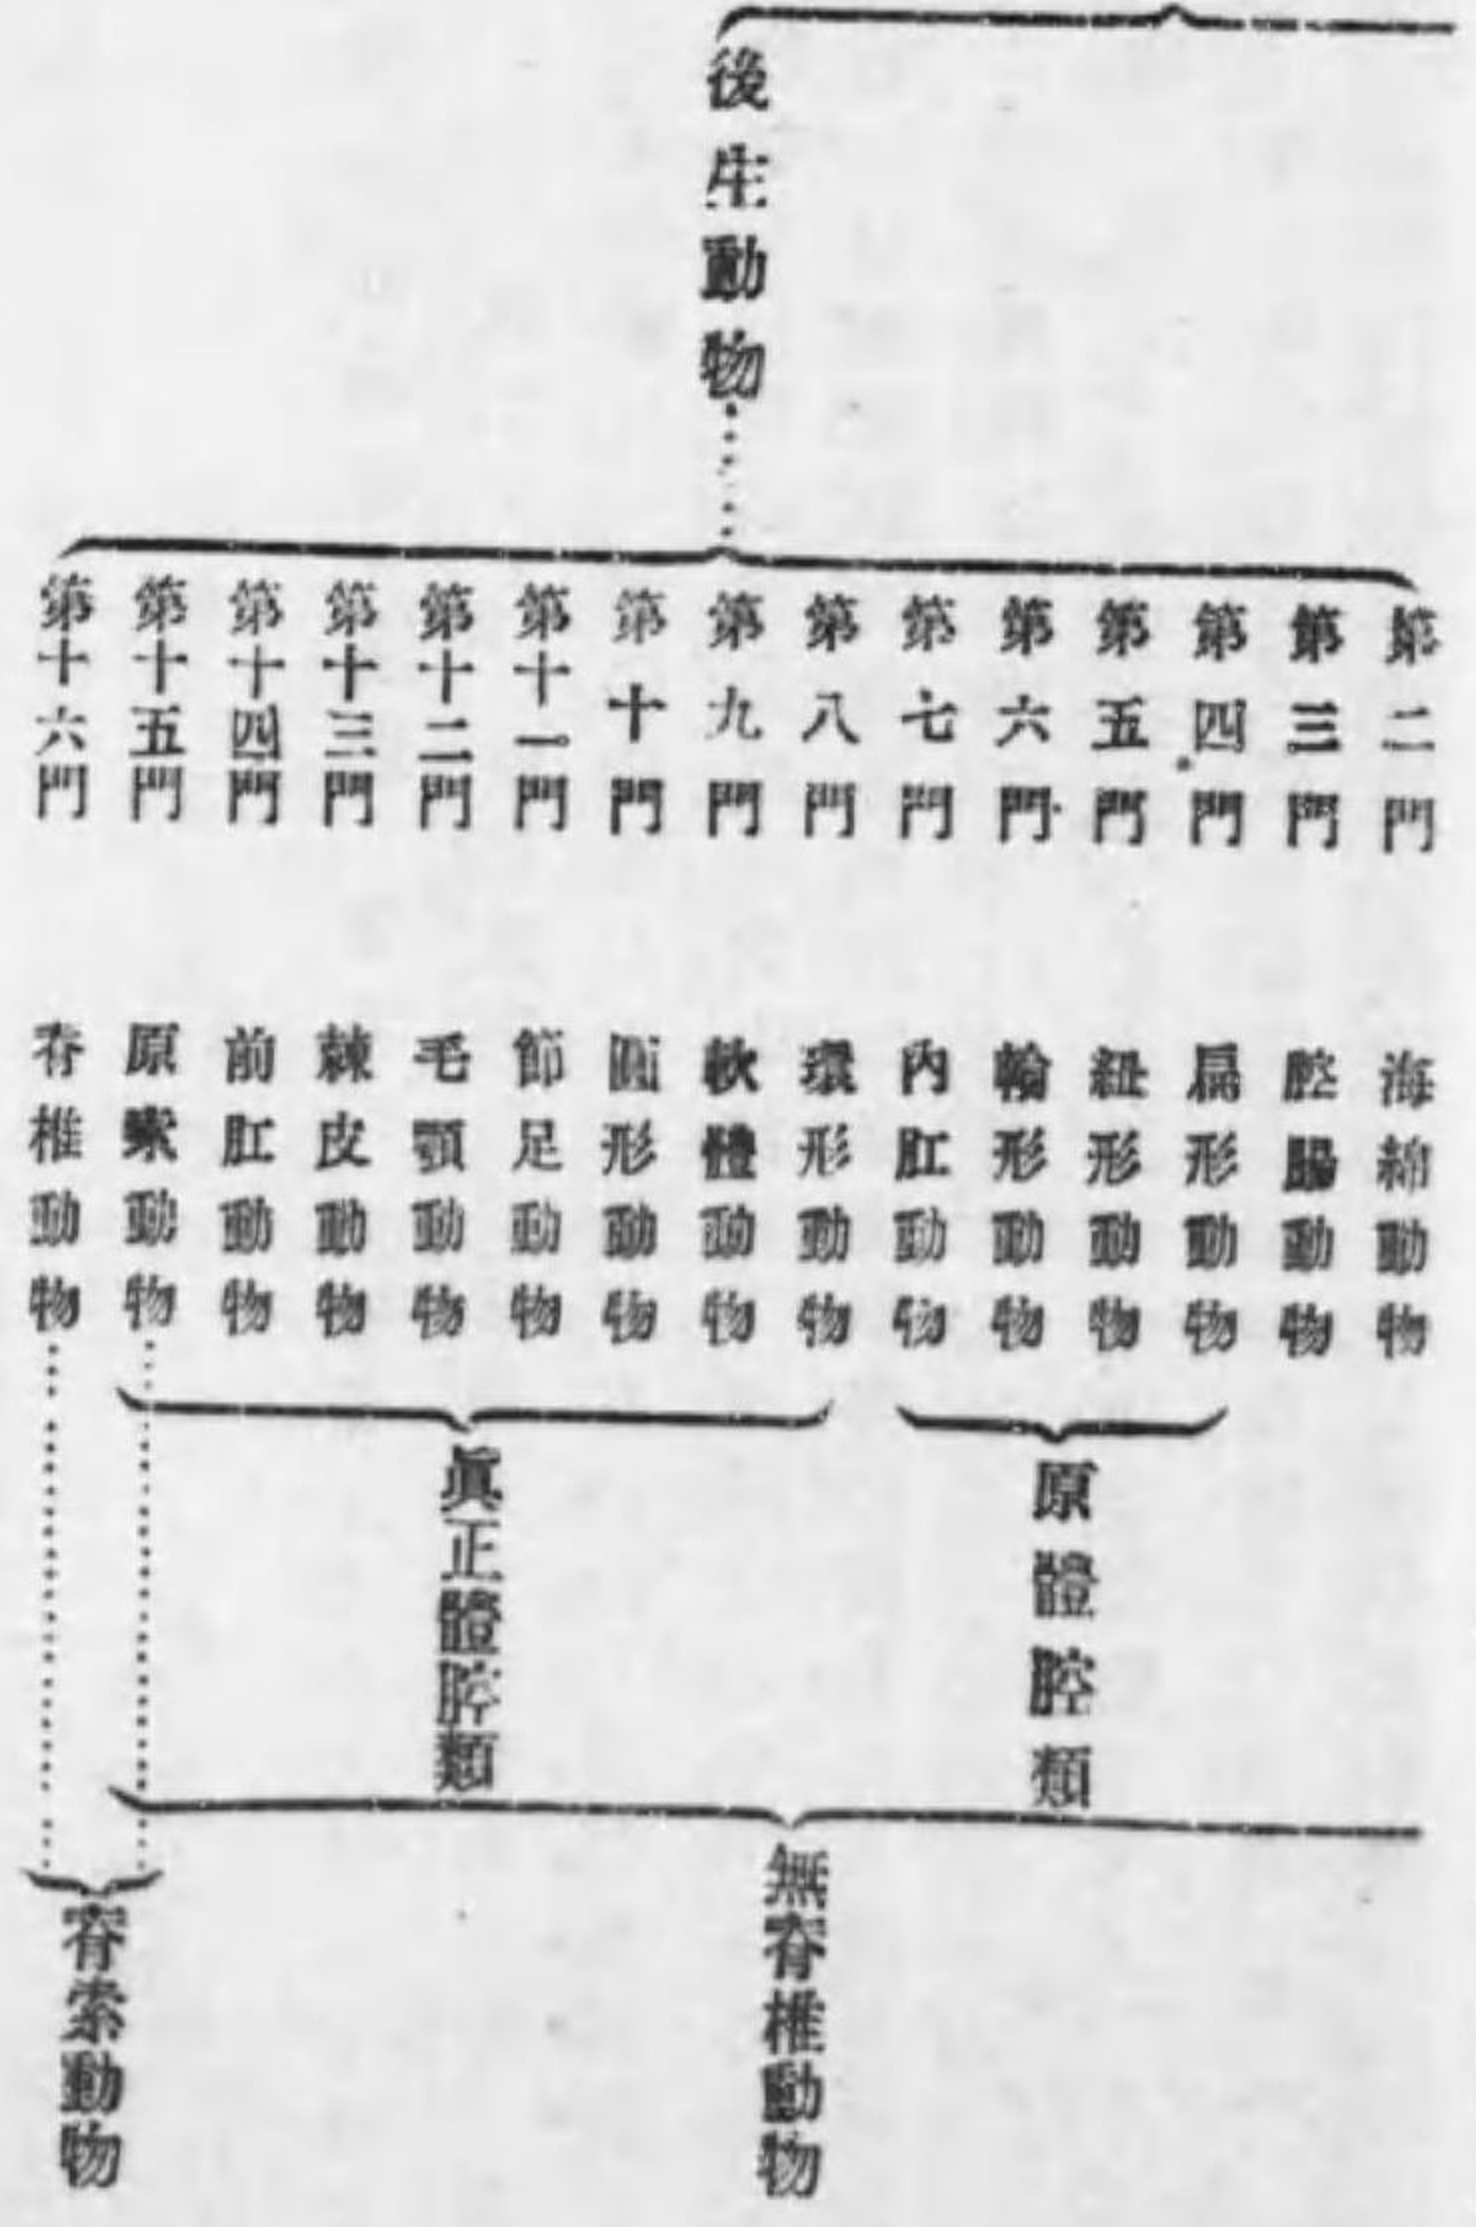 後生動物
第二門 海綿動物
第三門 腔腸動物
第四門 扁形動物
第五門 紐形動物
第六門 輪形動物
第七門 內肛動物
第八門 環形動物
第九門 軟體動物
第十門 圓形動物
第十一門 節足動物
第十二門 毛顎動物
第十三門 棘皮動物
第十四門 前肛動物
第十五門 原索動物
第十六門 脊椎動物
原體腔類
眞正體腔類
無脊椎動物
脊索動物